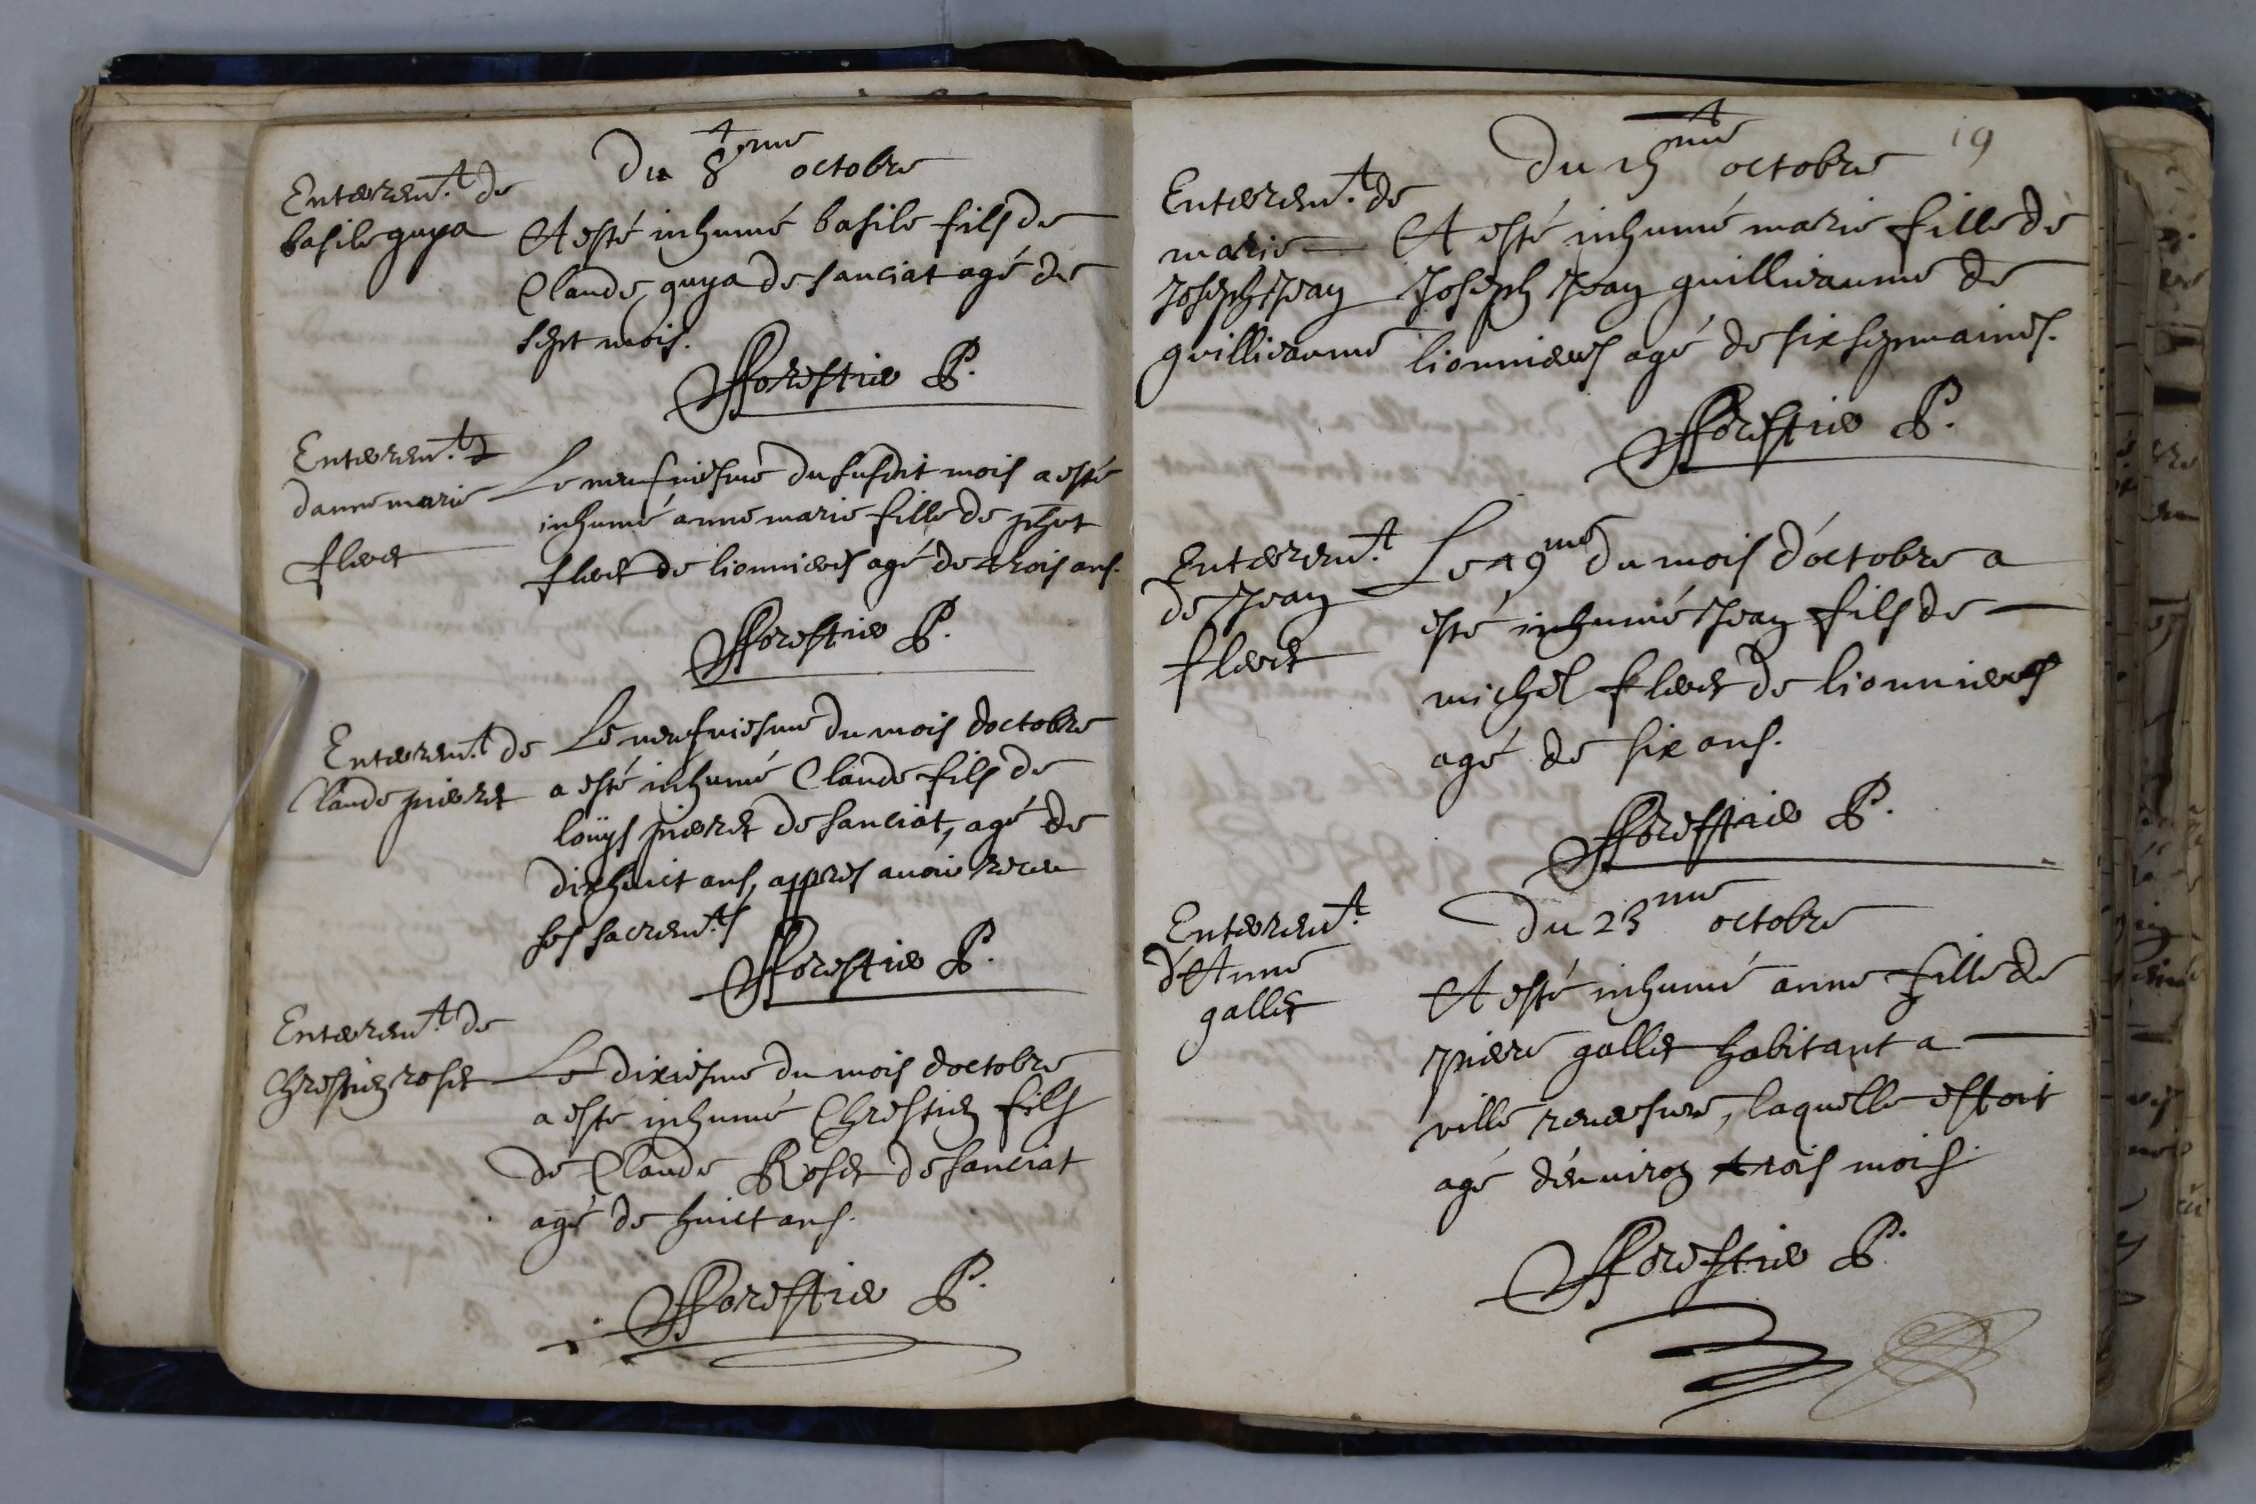 Du 8me octobre
Enterem.t de
basile guya
A esté inhumé basile fils de
Claude guya de sanciat agé de
sept mois.
fforestier P.
Enterem.t
danne marie
fleret
Le neufviesme du susdit mois a esté
inhumé anne marie fille de
fleret de lionnieres agé de trois ans.
fforestier P.
Enterem.t de
Claude pieret
Le neufviesme du mois doctobre
a esté inhumé Claude fils de
loüys pieret de sanciat, agé de
dixhuict ans, appres avoir receu
ses sacrem.ts
fforestier P.
Enterem.t de
Chrestien roset
Le dixiesme du mois doctobre
a esté inhumé Chrestien fils
de Claude Roset de sanciat
agé de huict ans.
fforestier P.
19
Du 15me octobre
Enterem.t de
marie
Joseph Jean
guillieaume
A esté inhumé marie fille de
Joseph Jean guillieaume de
lionnieres agé de six sepmaines.
fforestier P.
Enterem.t
de Jean
fleret
Le 19me du mois d'octobre a
esté inhumé Jean fils de
michel fleret de lionnieres
agé de six ans.
fforestier P.
Du 23me octobre
Enterem.t
d'Anne
gallet
A esté inhumé anne fille de
piere gallet habitant a
ville reversure, laquelle estoit
agé d'environ trois mois.
fforestier P.